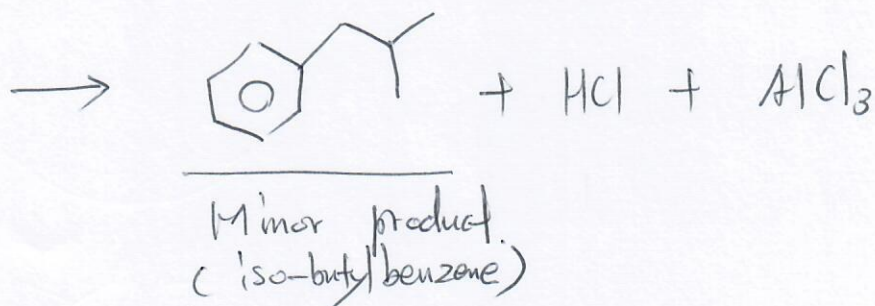 → + HCl + AlCl₃
Minor product.
(iso-butylbenzene)